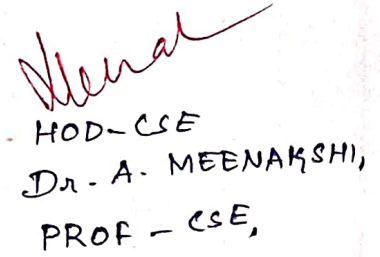 Meenal
HOD-CSE
Dr. A. MEENAKSHI,
PROF - CSE,